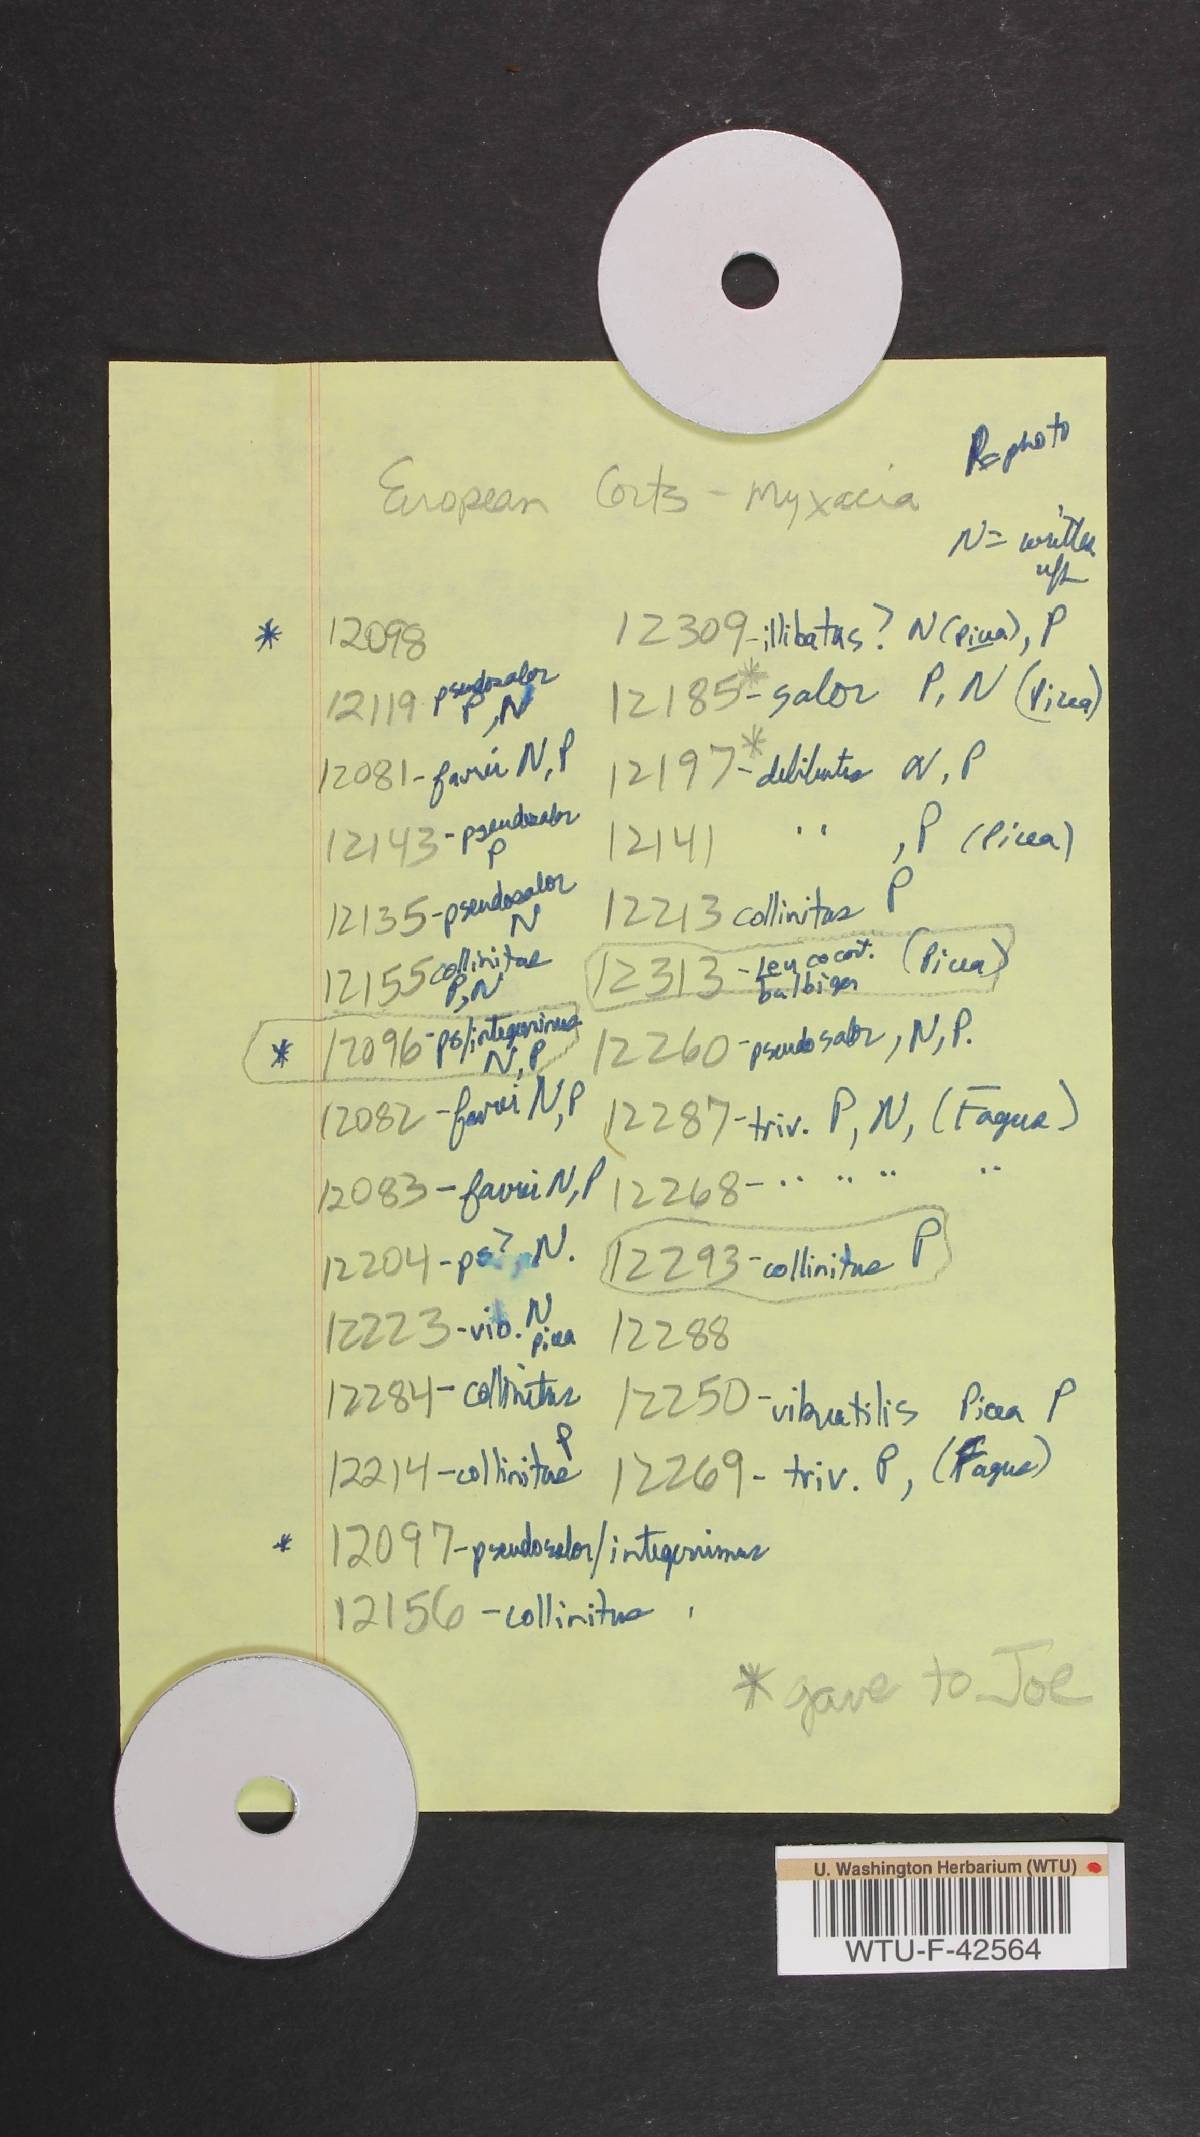 P=photo
European Corts - Myxacia
N= written
up
* 12098
12119 pseudosalor
P, N
12081- favrei N, P
12143- pseudosalor
P
12135-pseudosalor
N
12155 collinitus
P, N
* 12096-ps/integerrimus
N, P
12082 - favrei N, P
12083 - favrei N, P
12204 - ps?, N.
12223 - vib. N
picea
12284 - collinitus
12214 - collinitus P
* 12097-pseudosalor/integerrimus
12156 - collinitus
12309-illibatus? N (picea), P
12185*- salor P, N (Picea)
12197*- delibutus N, P
12141 " , P (Picea)
12213 collinitus P
12313 - Leucocort. (Picea)
bulbiger
12260 - pseudosalor, N, P.
12287-triv. P, N, (Fagus)
12268- " " " "
12293-collinitus P
12288
12250 -vibratilis Picea P
12269 - triv. P, (Fagus)
* gave to Joe
U. Washington Herbarium (WTU)
WTU-F-42564